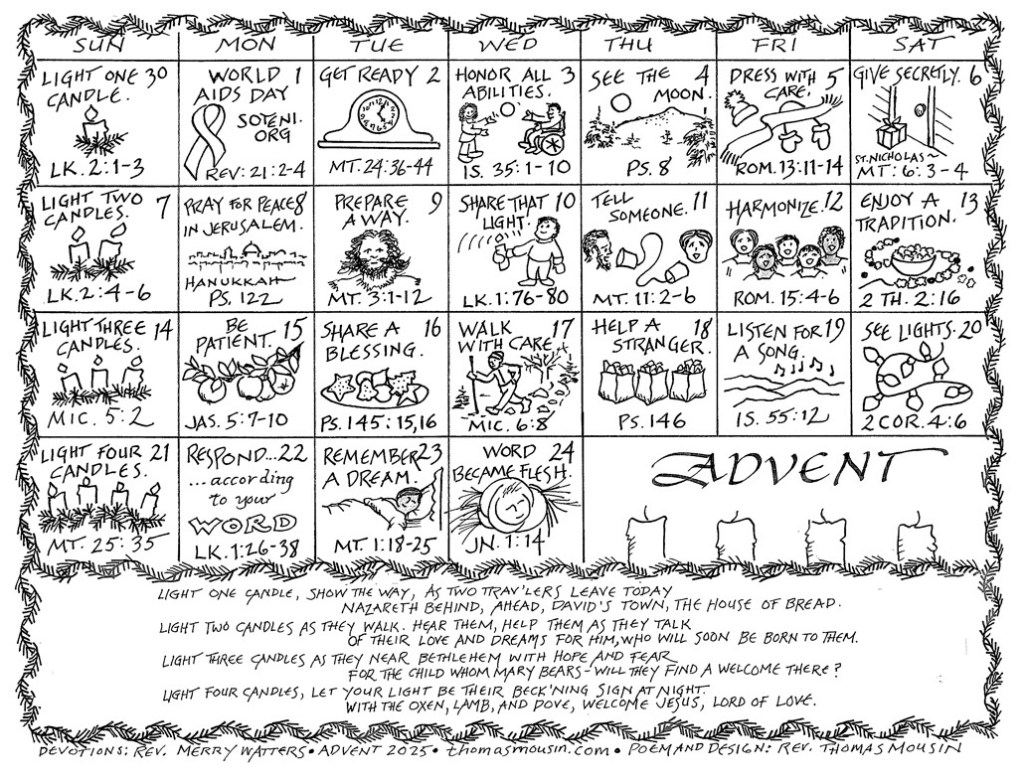 SUN MON TUE WED THU FRI SAT
LIGHT ONE 30
CANDLE.
LK. 2:1-3
WORLD 1
AIDS DAY
SOTENI.
ORG
REV: 21:2-4
GET READY 2
MT. 24:36-44
HONOR ALL 3
ABILITIES.
IS. 35:1-10
SEE THE 4
MOON.
PS. 8
DRESS WITH 5
CARE.
ROM. 13:11-14
GIVE SECRETLY. 6
ST. NICHOLAS~
MT: 6:3-4
LIGHT TWO
CANDLES. 7
LK. 2:4-6
PRAY FOR PEACE 8
IN JERUSALEM.
HANUKKAH
PS. 122
PREPARE 9
A WAY.
MT. 3:1-12
SHARE THAT 10
LIGHT.
LK. 1:76-80
TELL 11
SOMEONE.
MT. 11:2-6
HARMONIZE. 12
ROM. 15:4-6
ENJOY A 13
TRADITION.
2 TH. 2:16
LIGHT THREE 14
CANDLES.
MIC. 5:2
BE 15
PATIENT.
JAS. 5:7-10
SHARE A 16
BLESSING.
PS. 145:15,16
WALK 17
WITH CARE.
MIC. 6:8
HELP A 18
STRANGER.
PS. 146
LISTEN FOR 19
A SONG.
IS. 55:12
SEE LIGHTS. 20
2 COR. 4:6
LIGHT FOUR 21
CANDLES.
MT. 25:35
RESPOND... 22
...according
to your
WORD
LK. 1:26-38
REMEMBER 23
A DREAM.
MT. 1:18-25
WORD 24
BECAME FLESH.
JN. 1:14
ADVENT
LIGHT ONE CANDLE, SHOW THE WAY, AS TWO TRAV'LERS LEAVE TODAY
NAZARETH BEHIND, AHEAD, DAVID'S TOWN, THE HOUSE OF BREAD.
LIGHT TWO CANDLES AS THEY WALK. HEAR THEM, HELP THEM AS THEY TALK
OF THEIR LOVE AND DREAMS FOR HIM, WHO WILL SOON BE BORN TO THEM.
LIGHT THREE CANDLES AS THEY NEAR BETHLEHEM WITH HOPE AND FEAR
FOR THE CHILD WHOM MARY BEARS - WILL THEY FIND A WELCOME THERE?
LIGHT FOUR CANDLES, LET YOUR LIGHT BE THEIR BECK'NING SIGN AT NIGHT.
WITH THE OXEN, LAMB, AND DOVE, WELCOME JESUS, LORD OF LOVE.
DEVOTIONS: REV. MERRY WATTERS • ADVENT 2025 • thomasmousin.com • POEM AND DESIGN: REV. THOMAS MOUSIN